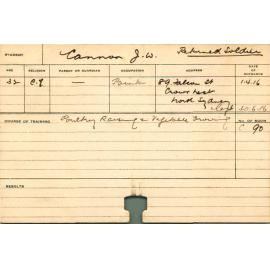 STUDENT Cannon J. W. Returned Soldier
AGE RELIGION PARENT OR GUARDIAN OCCUPATION ADDRESS DATE OF ENTRANCE
32 C.E. — 89 Falcon St 1.4.16
Crows Nest
North Sydney
Left 30.6.16
COURSE OF TRAINING Poultry Raising & Vegetable Growing NO. OF ROOM
C 90
RESULTS